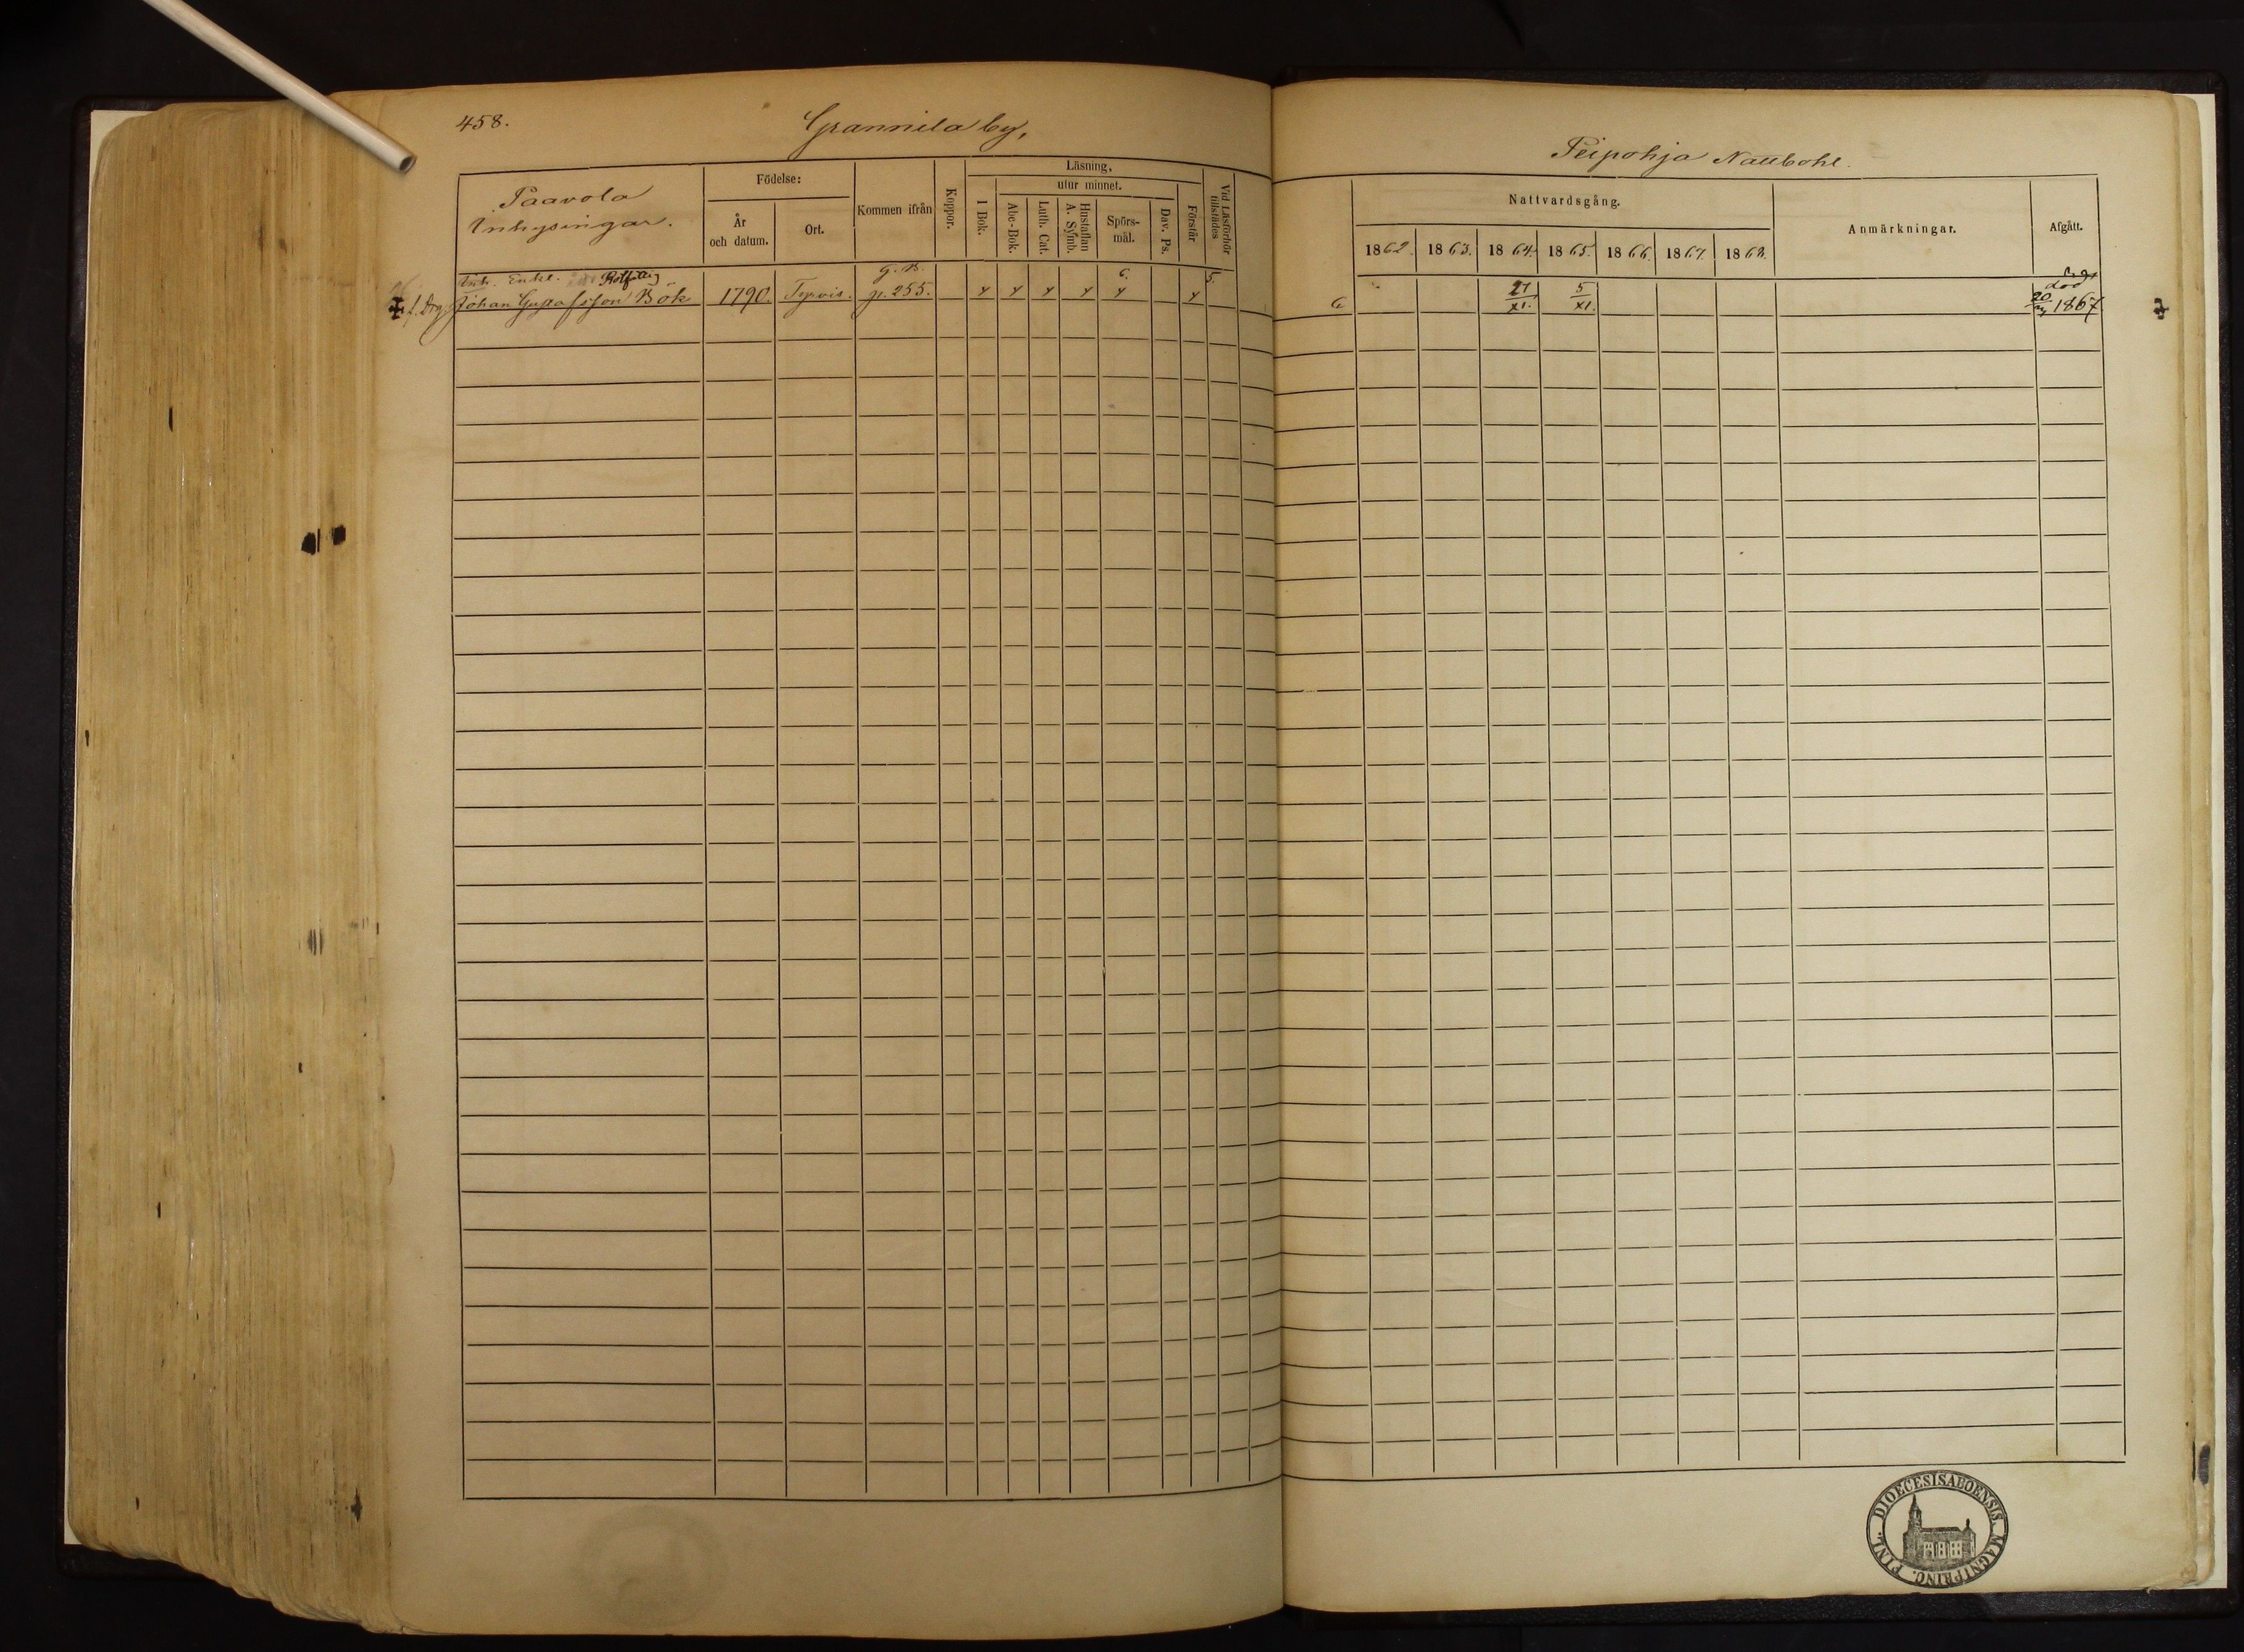 458.
Grannila by,
Paavola
Inhysingar.
Födelse:
År
och datum.
Ort.
Kommen ifrån
Koppor.
Läsning,
I Bok.
utur minnet.
Abc-Bok.
Luth. Cat.
Hustaflan
A. Symb.
Spörs-
mål.
Dav. Ps.
Förstår
Vid Läsförhör
tillstädes
Inh. Enkl.
f. Drg. Johan Gustafsson Bök
1790.
g. B.
p. 255.
6.
5
Peipohja Naubohl.
Nattvardsgång.
1862. 1863. 1864. 1865. 1866. 1867. 1868.
Anmärkningar.
Afgått.
27
XI.
5
XI.
död
20 1867
FINL. DIOECESIS ABOENSIS. MAGNI PRINC.